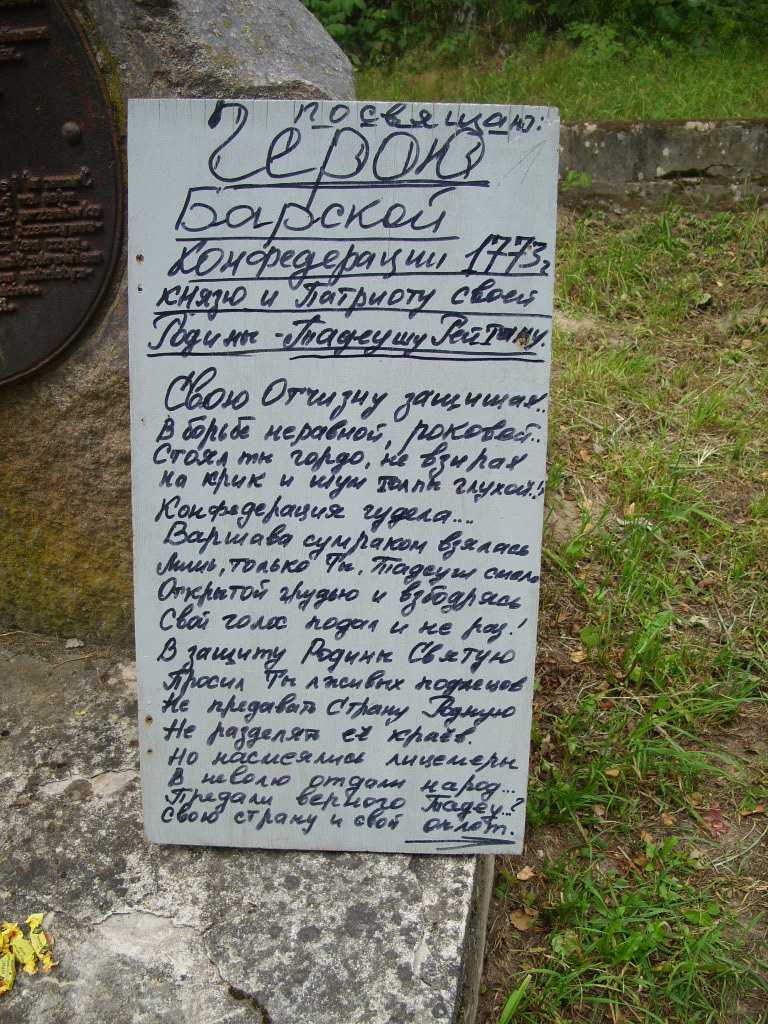 посвящаю:
Герою
Барской
Конфедерации 1773г
князю и Патриоту своей
Родины - Тадеушу Рейтану.
Свою Отчизну защищая..
В борьбе неравной, роковой..
Стоял ты гордо, не взирая
на крик и шум толпы глухой!!
Конфедерация гудела...
Варшава сумраком взялась
Лишь, только Ты, Тадеуш смело
Открытой грудью и взбодрясь
Свой голос подал и не раз!
В защиту Родины Святую
Просил Ты лживых подлецов
Не предавать Страну Родную
Не разделять её краёв.
Но насмеялись лицемеры
В неволю отдали народ...
Предали верного Тадеу..?
Свою страну и свой оплот.